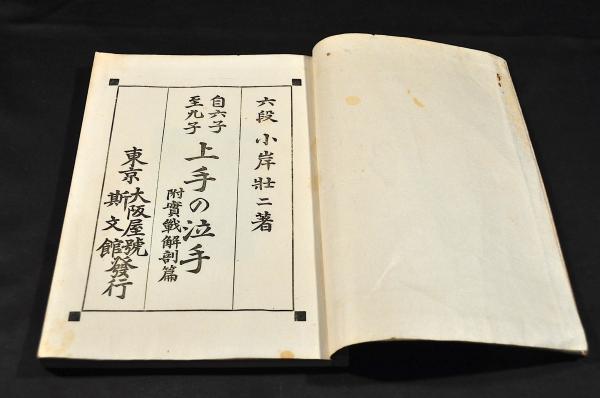 六段 小岸壯二著
自六子
至九子
上手の泣手
附實戰解剖篇
東京
大阪屋號
斯文館
發行